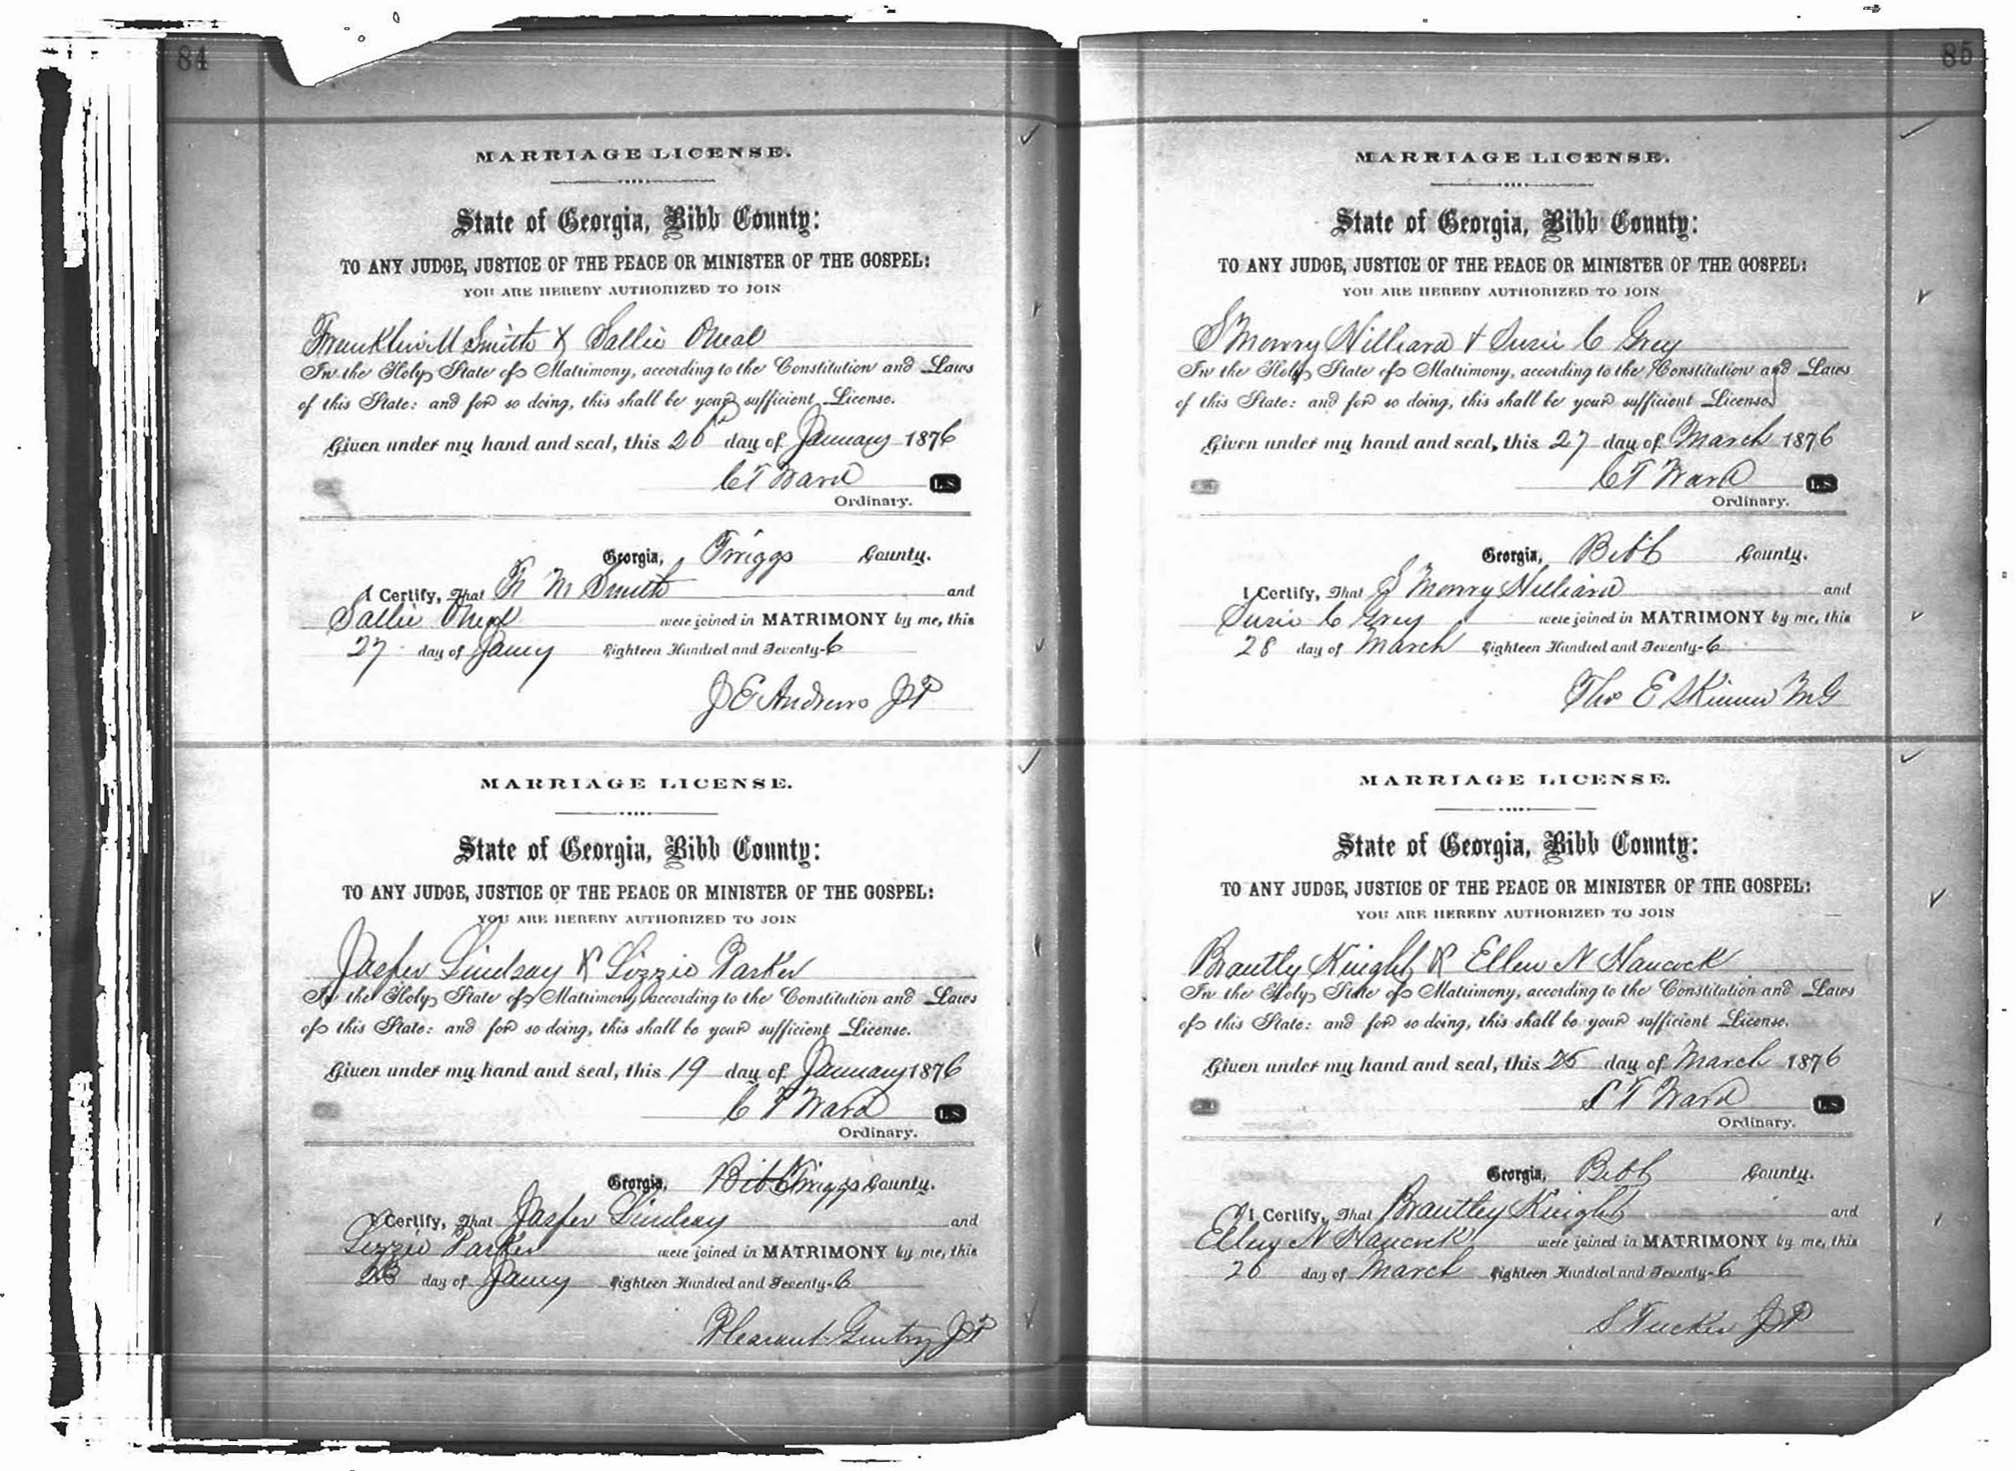 84
MARRIAGE LICENSE.
State of Georgia, Bibb County:
TO ANY JUDGE, JUSTICE OF THE PEACE OR MINISTER OF THE GOSPEL:
YOU ARE HEREBY AUTHORIZED TO JOIN
Franklin M Smith & Sallie Oneal
In the Holy State of Matrimony, according to the Constitution and Laws
of this State: and for so doing, this shall be your sufficient License.
Given under my hand and seal, this 26 day of January 1876
C T Ward L.S.
Ordinary.
Georgia, Twiggs County.
I Certify, That F M Smith and
Sallie Oneal were joined in MATRIMONY by me, this
27 day of Jany Eighteen Hundred and Seventy-6
J E Andrews JP
MARRIAGE LICENSE.
State of Georgia, Bibb County:
TO ANY JUDGE, JUSTICE OF THE PEACE OR MINISTER OF THE GOSPEL:
YOU ARE HEREBY AUTHORIZED TO JOIN
Jasper Lindsay & Lizzie Parker
In the Holy State of Matrimony, according to the Constitution and Laws
of this State: and for so doing, this shall be your sufficient License.
Given under my hand and seal, this 19 day of January 1876
C T Ward L.S.
Ordinary.
Georgia, Bibb Twiggs County.
I Certify, That Jasper Lindsay and
Lizzie Parker were joined in MATRIMONY by me, this
23 day of Jany Eighteen Hundred and Seventy-6
Pleasant Gentry JP
85
MARRIAGE LICENSE.
State of Georgia, Bibb County:
TO ANY JUDGE, JUSTICE OF THE PEACE OR MINISTER OF THE GOSPEL:
YOU ARE HEREBY AUTHORIZED TO JOIN
S Mowry Hilliard & Susie C Grey
In the Holy State of Matrimony, according to the Constitution and Laws
of this State: and for so doing, this shall be your sufficient License.
Given under my hand and seal, this 27 day of March 1876
C T Ward L.S.
Ordinary.
Georgia, Bibb County.
I Certify, That S Mowry Hilliard and
Susie C Grey were joined in MATRIMONY by me, this
28 day of March Eighteen Hundred and Seventy-6
Tho E Skinner MG
MARRIAGE LICENSE.
State of Georgia, Bibb County:
TO ANY JUDGE, JUSTICE OF THE PEACE OR MINISTER OF THE GOSPEL:
YOU ARE HEREBY AUTHORIZED TO JOIN
Brantly Knight & Ellen N Hancock
In the Holy State of Matrimony, according to the Constitution and Laws
of this State: and for so doing, this shall be your sufficient License.
Given under my hand and seal, this 25 day of March 1876
C T Ward L.S.
Ordinary.
Georgia, Bibb County.
I Certify, That Brantley Knight and
Ellen N Hancock were joined in MATRIMONY by me, this
26 day of March Eighteen Hundred and Seventy-6
S Tucker JP